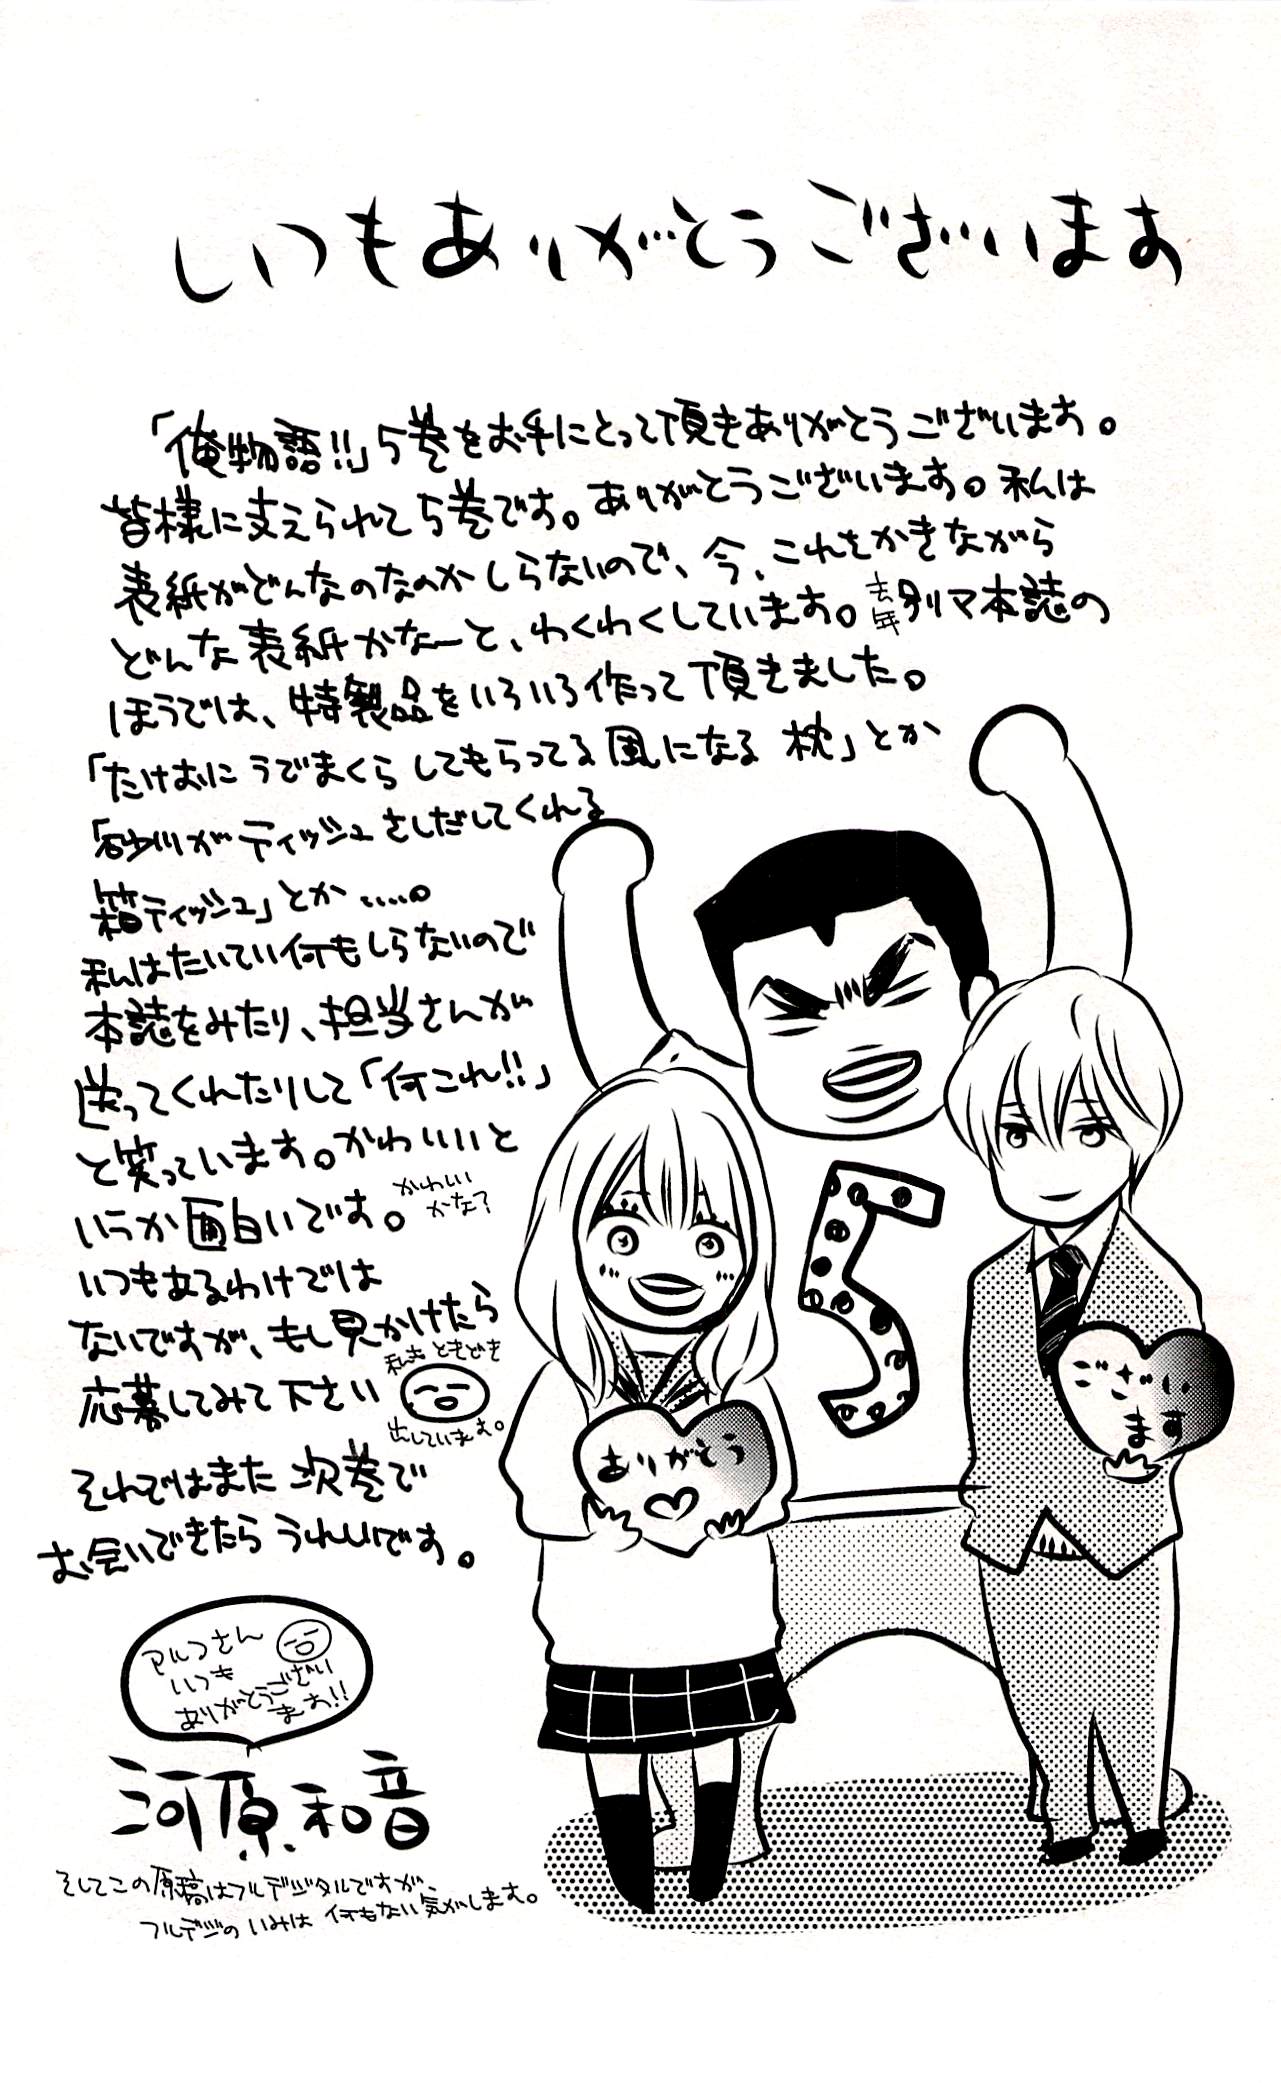 いつもありがとうございます
「俺物語!!」5巻をお手にとって頂きありがとうございます。
皆様に支えられて5巻です。ありがとうございます。私は
表紙がどんなのなのかしらないので、今、これをかきながら
どんな表紙かなーと、わくわくしています。去年別マ本誌の
ほうでは、特製品をいろいろ作って頂きました。
「たけおにうでまくらしてもらってる風になる枕」とか
「砂川がティッシュさしだしてくれる
箱ティッシュ」とか……。
私はたいてい何もしらないので
本誌をみたり、担当さんが
送ってくれたりして「何これ!!」
と笑っています。かわいいと
いうか面白いです。
かわいい
かな?
いつもあるわけでは
ないですが、もし見かけたら
応募してみて下さい
私もときどき
出しています。
それではまた次巻で
お会いできたらうれしいです。
アルコさん
いつも
ありがとうござい
ます!!
河原和音
そしてこの原稿はフルデジタルですが、
フルデジのいみは何もない気がします。
5
ありがとう
ござい
ます